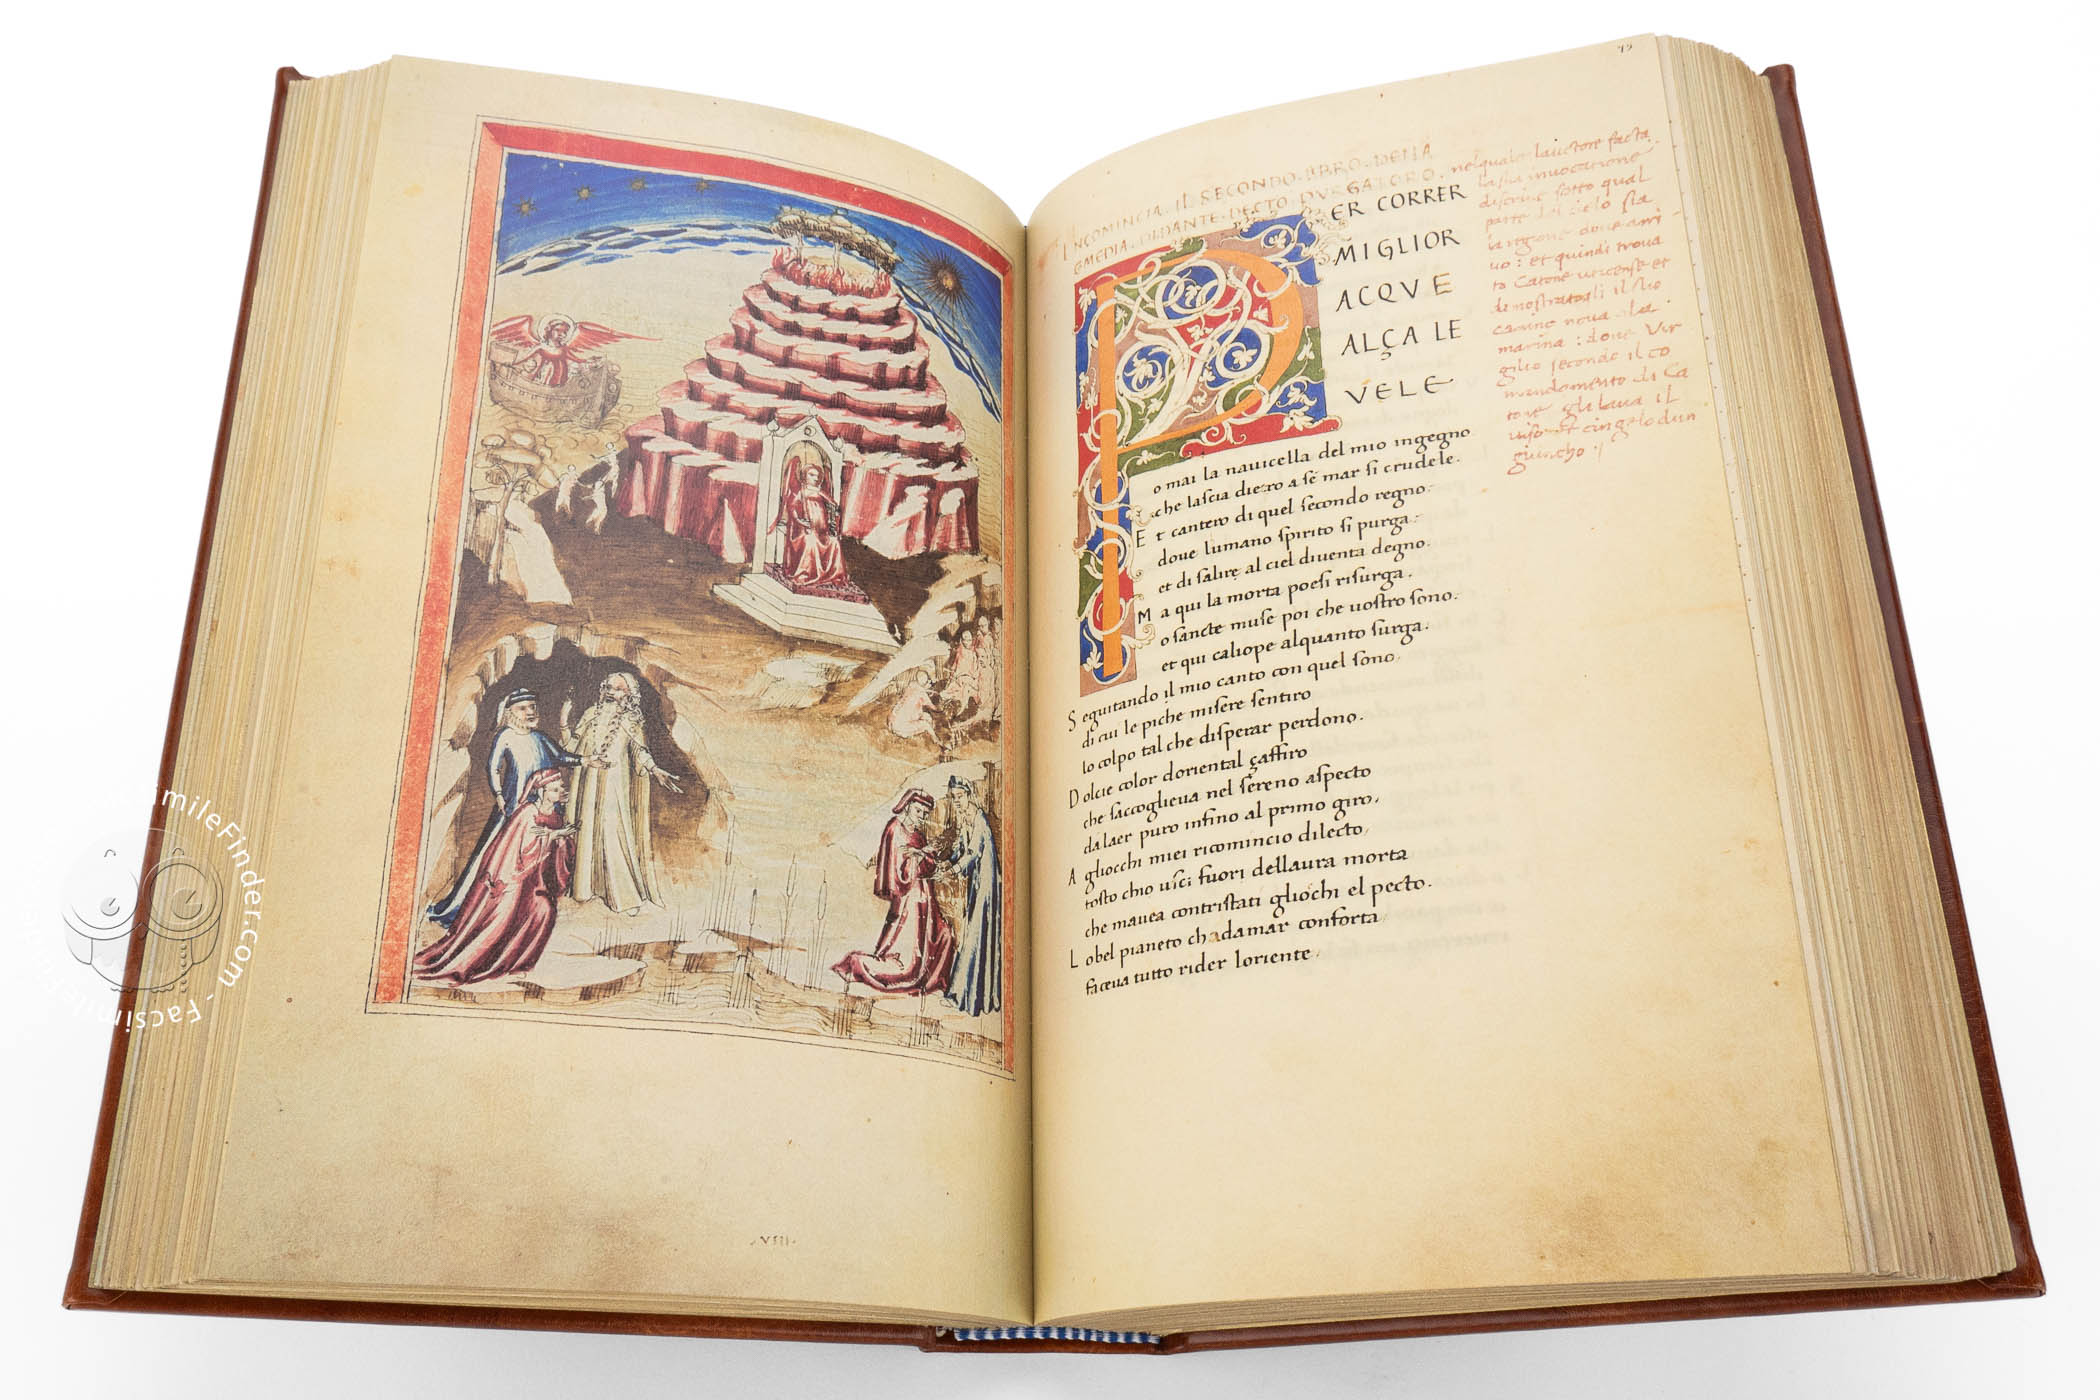 .VIII.
79
INCOMINCIA . IL SECONDO . LIBRO . DELLA
COMEDIA . DI DANTE . DECTO PVRGATORO . nelquale lauctore facta
la sua inuocatione
discriue sotto qual
parte del cielo sta
la regione doue arri
uo : et quindi troua
to Catone uticense et
demostratogli il suo
camino uano a la
marina : doue Vir
gilio secondo il co
mandamento di Ca
tone gli laua il
uiso et cingelo dun
giuncho :/
PER CORRER
MIGLIOR
ACQVE
ALÇA LE
VELE
o mai la nauicella del mio ingegno
che lascia dietro a sé mar si crudele.
E t cantero di quel secondo regno:
doue lumano spirito si purga:
et di salire al ciel diuenta degno.
M a qui la morta poesi risurga,
o sancte muse poi che uostro sono:
et qui caliope alquanto surga.
S eguitando il mio canto con quel sono,
di cui le piche misere sentiro
lo colpo tal che disperar perdono.
D olcie color doriental çaffiro
che saccoglieua nel sereno aspecto
da laer puro infino al primo giro,
A gliocchi miei ricomincio dilecto,
tosto chio usci fuori dellaura morta
che mauea contristati gliochi el pecto.
L obel pianeto chadamar conforta,
faceua tutto rider loriente,
FacsimileFinder.com - Facsimile